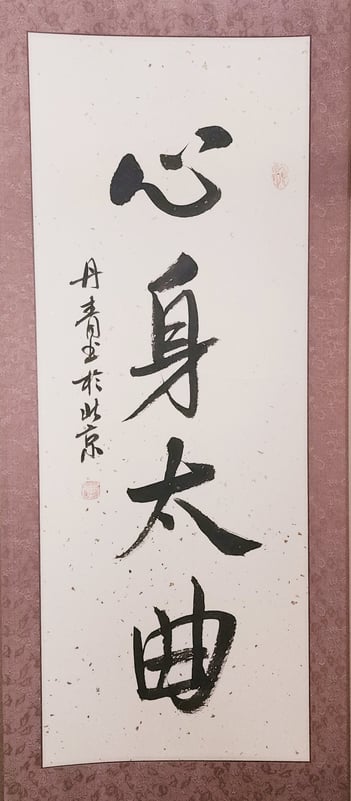 心身太曲
丹青書於北京